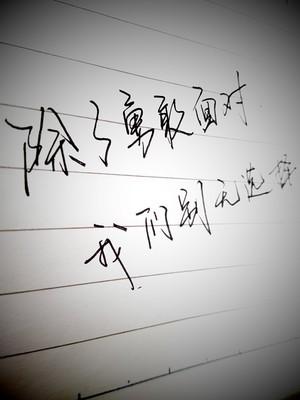 除了勇敢面对
我们别无选择